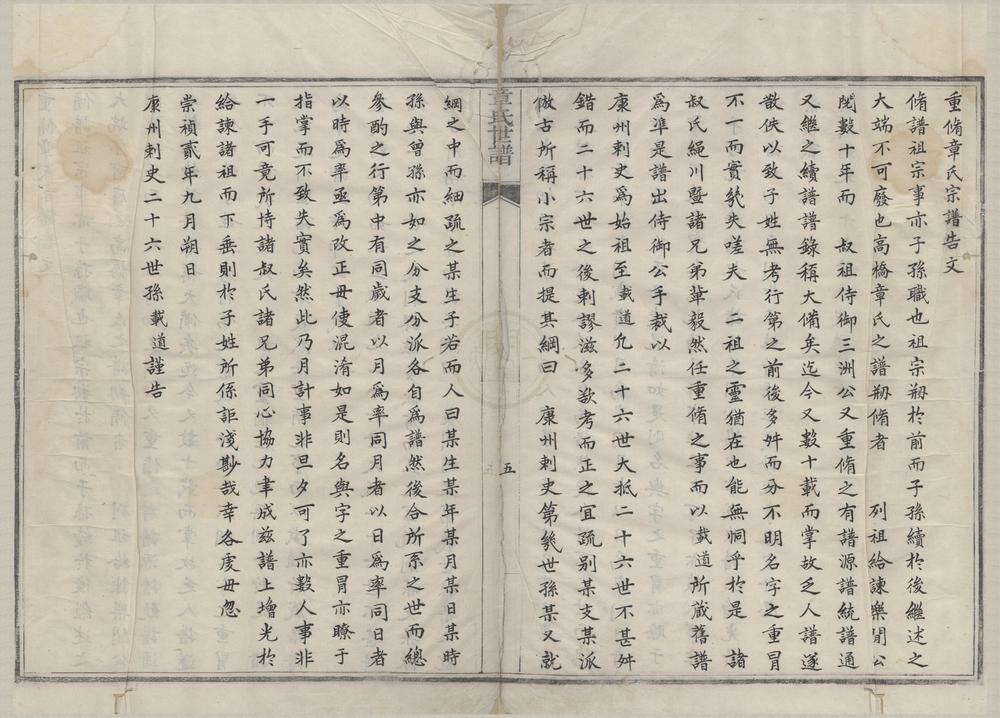 重脩章氏宗譜告文
脩譜祖宗事亦子孫職也祖宗剏於前而子孫續於後繼述之
大端不可廢也高橋章氏之譜剏脩者 列祖給諫樂閒公
閱數十年而 叔祖侍御三洲公又重脩之有譜源譜統譜通
又繼之續譜譜錄稱大備矣迄今又數十載而掌故乏人譜遂
散佚以致子姓無考行第之前後多舛而分不明名字之重冒
不一而實幾失嗟夫 二祖之靈猶在也能無恫乎於是 諸
叔氏繩川暨諸兄弟輩毅然任重脩之事而以載道所蔵舊譜
為準是譜出侍御公手裁以
康州刺史為始祖至載道凢二十六世大抵二十六世不甚舛
錯而二十六世之後刺謬滋多欲考而正之宜疏别某支某派
倣古所稱小宗者而提其綱曰 康州刺史第幾世孫某又就
章氏世譜
五
綱之中而細疏之某生子若而人曰某生某年某月某日某時
孫與曾孫亦如之分支分派各自為譜然後合所系之世而總
參酌之行第中有同歲者以月為率同月者以日為率同日者
以時為率亟為改正毋使混淆如是則名與字之重冒亦瞭于
指掌而不致失實矣然此乃月計事非旦夕可了亦數人事非
一手可竟所恃諸叔氏諸兄弟同心協力聿成兹譜上增光於
給諫諸祖而下垂則於子姓所係詎淺尠哉幸各虔毋忽
崇禎貳年九月朔日
康州刺史二十六世孫載道謹告